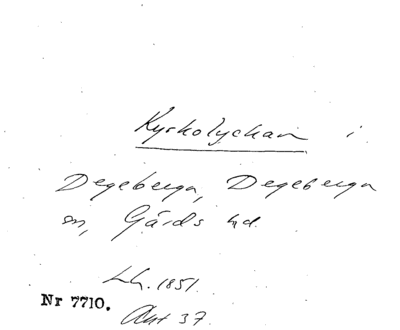 Kyrkolyckan i
Degeberga, Degeberga
sn, Gärds hd.
Lh. 1851.
Nr 7710.
Akt 37.